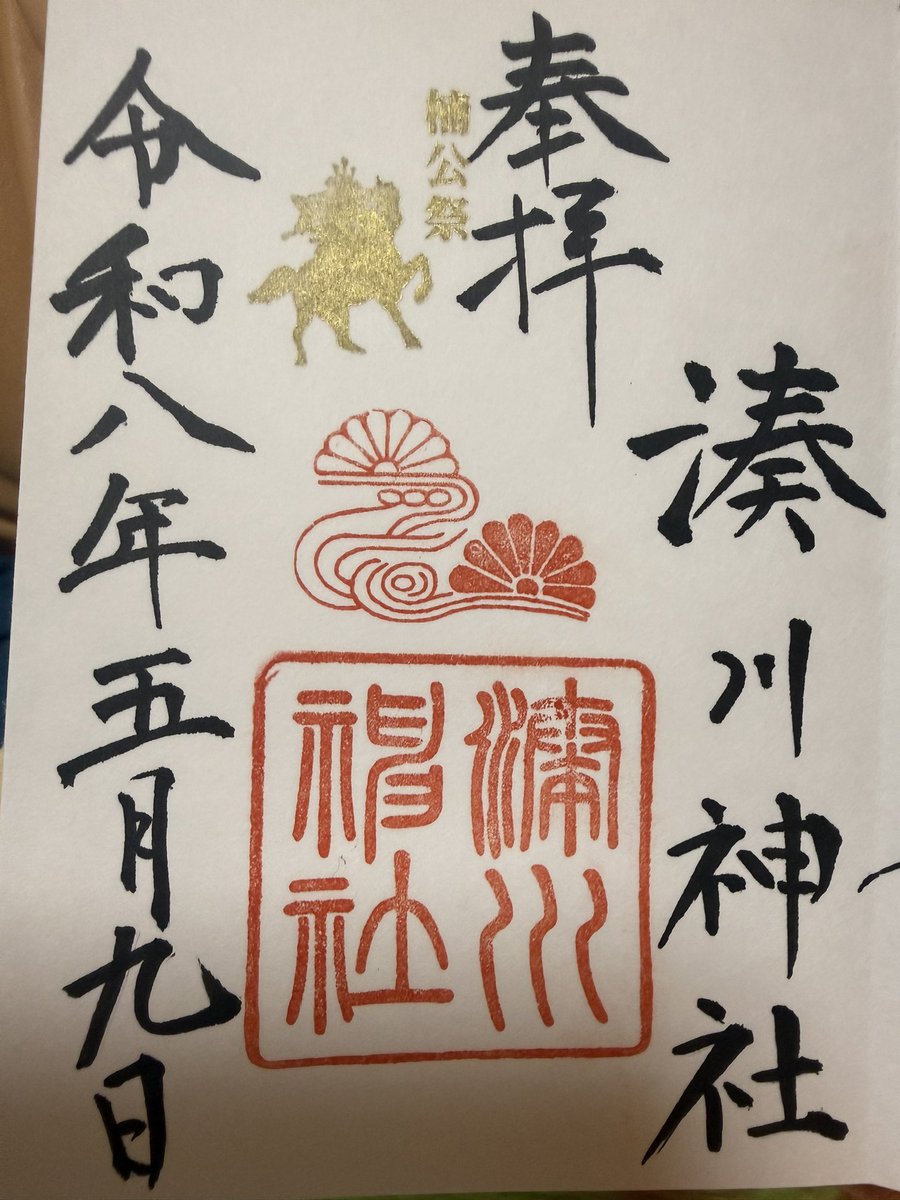 奉拝
湊川神社
楠公祭
湊川
神社
令和八年五月九日